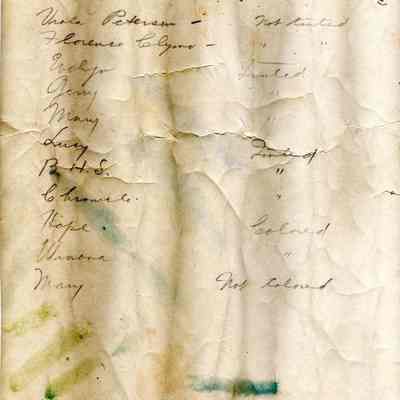 Viola Peterson - Not tinted
Florence Clymo - " "
Evelyn Tinted
Gerry "
Mary "
Lucy Tinted
B.H.S. "
Chronicle. "
Hope. Colored
Winona "
Mary Not Colored